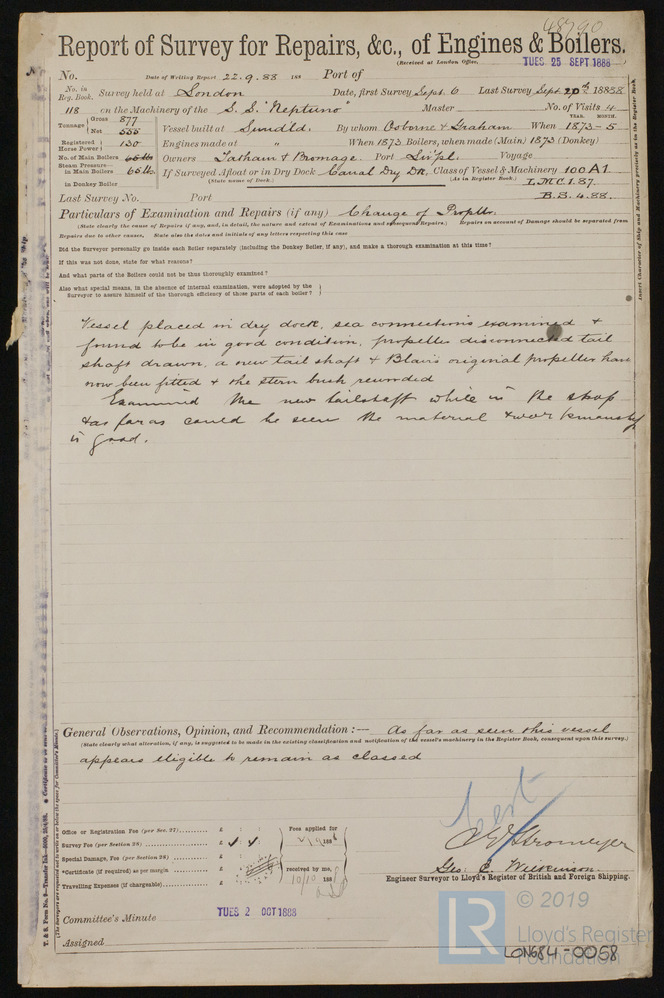 48790
Report of Survey for Repairs, &c., of Engines & Boilers.
(Received at London Office, TUES. 25 SEPT 1888
No. Date of Writing Report 22.9.88 188 Port of
No. in Reg. Book. Survey held at London Date, first Survey Sept. 6 Last Survey Sept 20th 1888
118 on the Machinery of the S.S. "Neptuno" Master No. of Visits 4
Tonnage Gross 877 Net 555 Vessel built at Sundld. By whom Osborne & Graham When 1873-5 YEAR. MONTH.
Registered Horse Power 130 Engines made at " When 1873. Boilers, when made (Main) 1873 (Donkey)
No. of Main Boilers Owners Tatham & Bromage. Port Liv'pl. Voyage
Steam Pressure in Main Boilers 65 lb If Surveyed Afloat or in Dry Dock Canal Dry Dk. Class of Vessel & Machinery 100A1
(State name of Dock.) (As in Register Book.) L.M.C.1.87.
in Donkey Boiler
Last Survey No. Port B.S. 4.88.
Particulars of Examination and Repairs (if any) Change of Propllr.
(State clearly the cause of Repairs if any, and, in detail, the nature and extent of Examinations and subsequent Repairs.) Repairs on account of Damage should be separated from
Repairs due to other causes. State also the dates and initials of any letters respecting this case
Did the Surveyor personally go inside each Boiler separately (including the Donkey Boiler, if any), and make a thorough examination at this time?
If this was not done, state for what reasons?
And what parts of the Boilers could not be thus thoroughly examined?
Also what special means, in the absence of internal examination, were adopted by the
Surveyor to assure himself of the thorough efficiency of those parts of each boiler?
Vessel placed in dry dock, sea connections examined &
found to be in good condition, propeller disconnected tail
shaft drawn, a new tail shaft & Blair's original propeller have
now been fitted & the stern bush rewooded
Examined the new tailshaft while in the shop
& as far as could be seen the material & workmanship
is good.
General Observations, Opinion, and Recommendation :— As far as seen this vessel
(State clearly what alteration, if any, is suggested to be made in the existing classification and notification of the vessel's machinery in the Register Book, consequent upon this survey.)
appears eligible to remain as classed
Office or Registration Fee (per Sec. 27) £ : : Fees applied for
Survey Fee (per Section 28) £ 188
Special Damage, Fee (per Section 28) £
*Certificate (if required) as per margin £ received by me,
Travelling Expenses (if chargeable) £ 10/10 188
Geo. C. Wilkinson
Engineer Surveyor to Lloyd's Register of British and Foreign Shipping.
Committee's Minute TUES 2 OCT 1888
Assigned
Insert Character of Ship and Machinery precisely as in the Register Book.
© 2019
LR Lloyd's Register
Foundation
LON684-0058